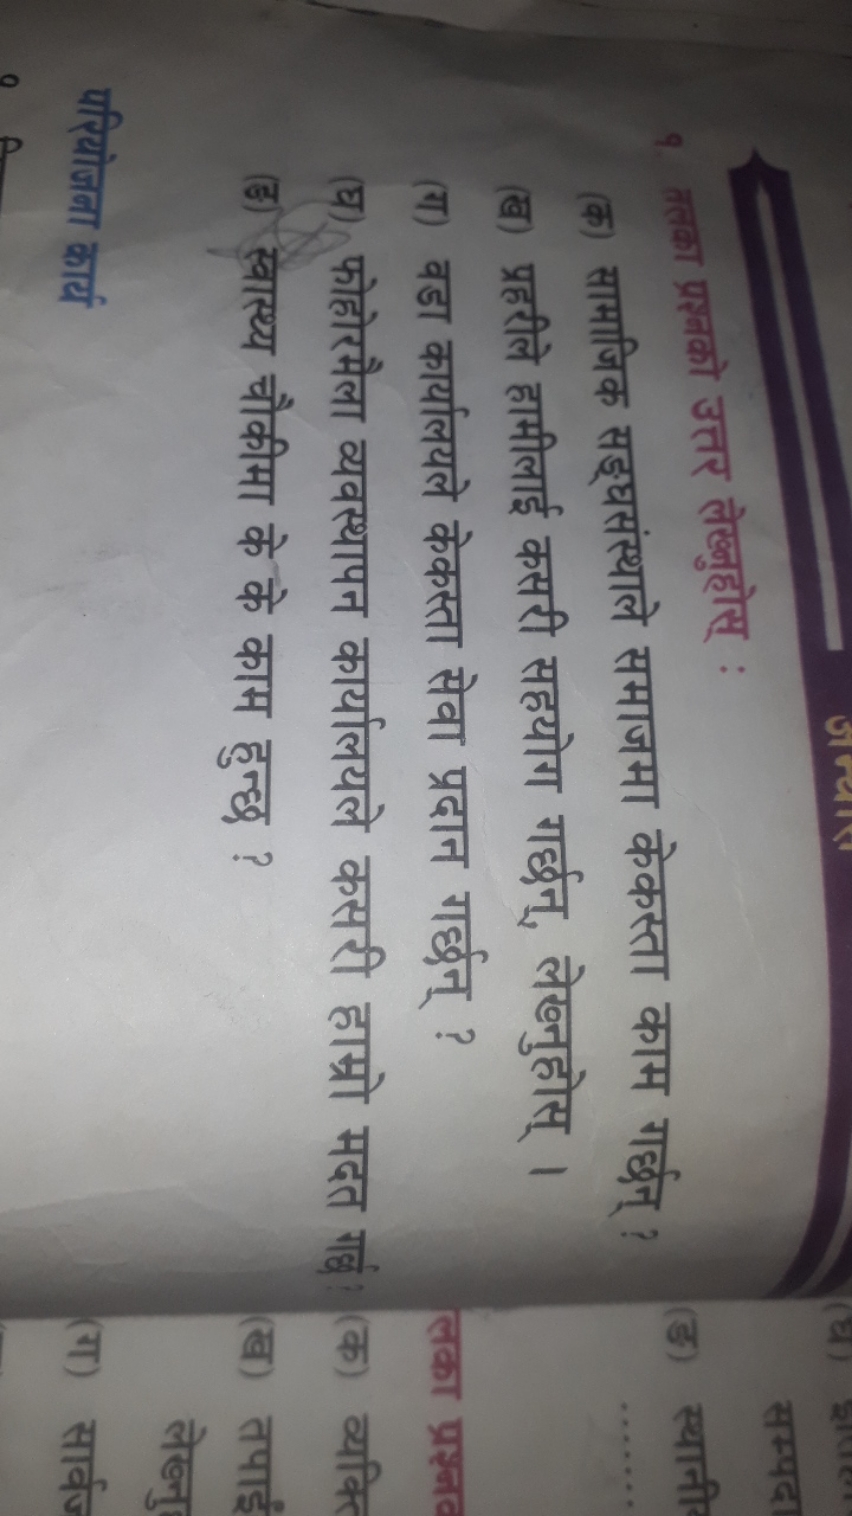 अभ्यास
१. तलका प्रश्नको उत्तर लेख्नुहोस् :
(क) सामाजिक सङ्घसंस्थाले समाजमा केकस्ता काम गर्छन् ?
(ख) प्रहरीले हामीलाई कसरी सहयोग गर्छन्, लेख्नुहोस् ।
(ग) वडा कार्यालयले केकस्ता सेवा प्रदान गर्छन् ?
(घ) फोहोरमैला व्यवस्थापन कार्यालयले कसरी हाम्रो मदत गर्छ ?
(ङ) स्वास्थ्य चौकीमा के के काम हुन्छ ?
परियोजना कार्य
(घ)
सम्पदा
(ङ) स्थानीय
........
(क)
(ख) तपाईं
(ग)